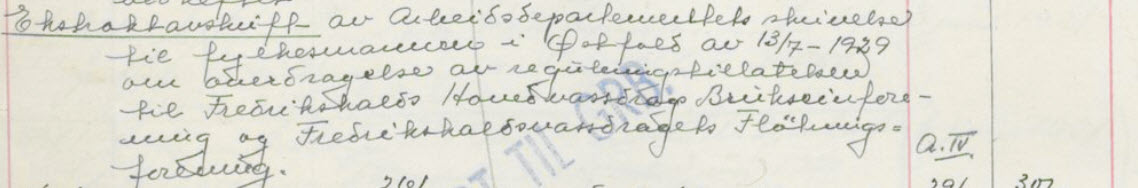 Ekstraktavskrift av Arbeidsdepartementets skrivelse
til fylkesmannen i Østfold av 13/7-1929
om overdragelse av reguleringstillatelsen
til Fredrikshalds Hovedvassdrags Brukseierfore-
ning og Fredrikshaldsvassdragets Fløtnings=
forening. A.IV.
TIL GRB.
291 307